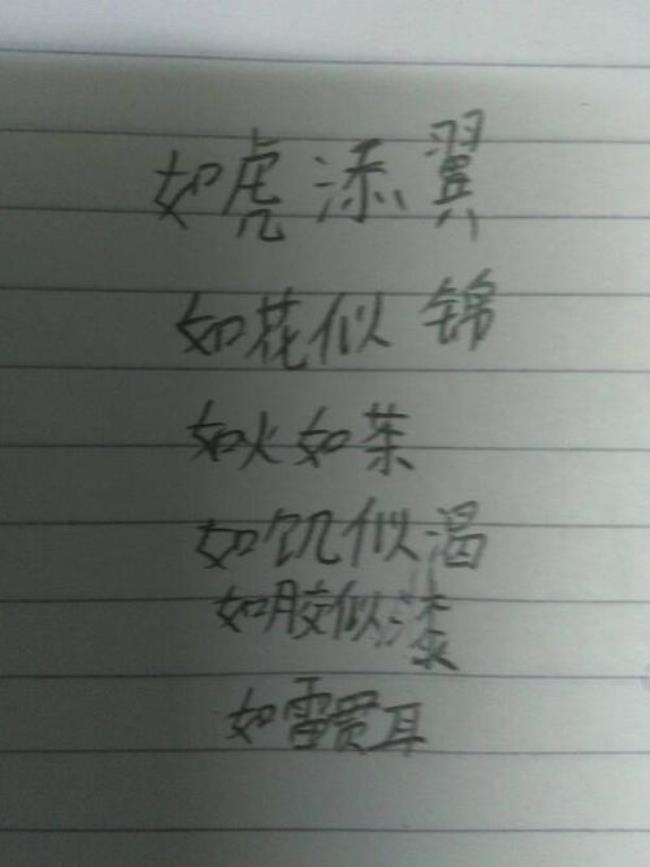 如虎添翼
如花似锦
如火如茶
如饥似渴
如胶似漆
如雷贯耳